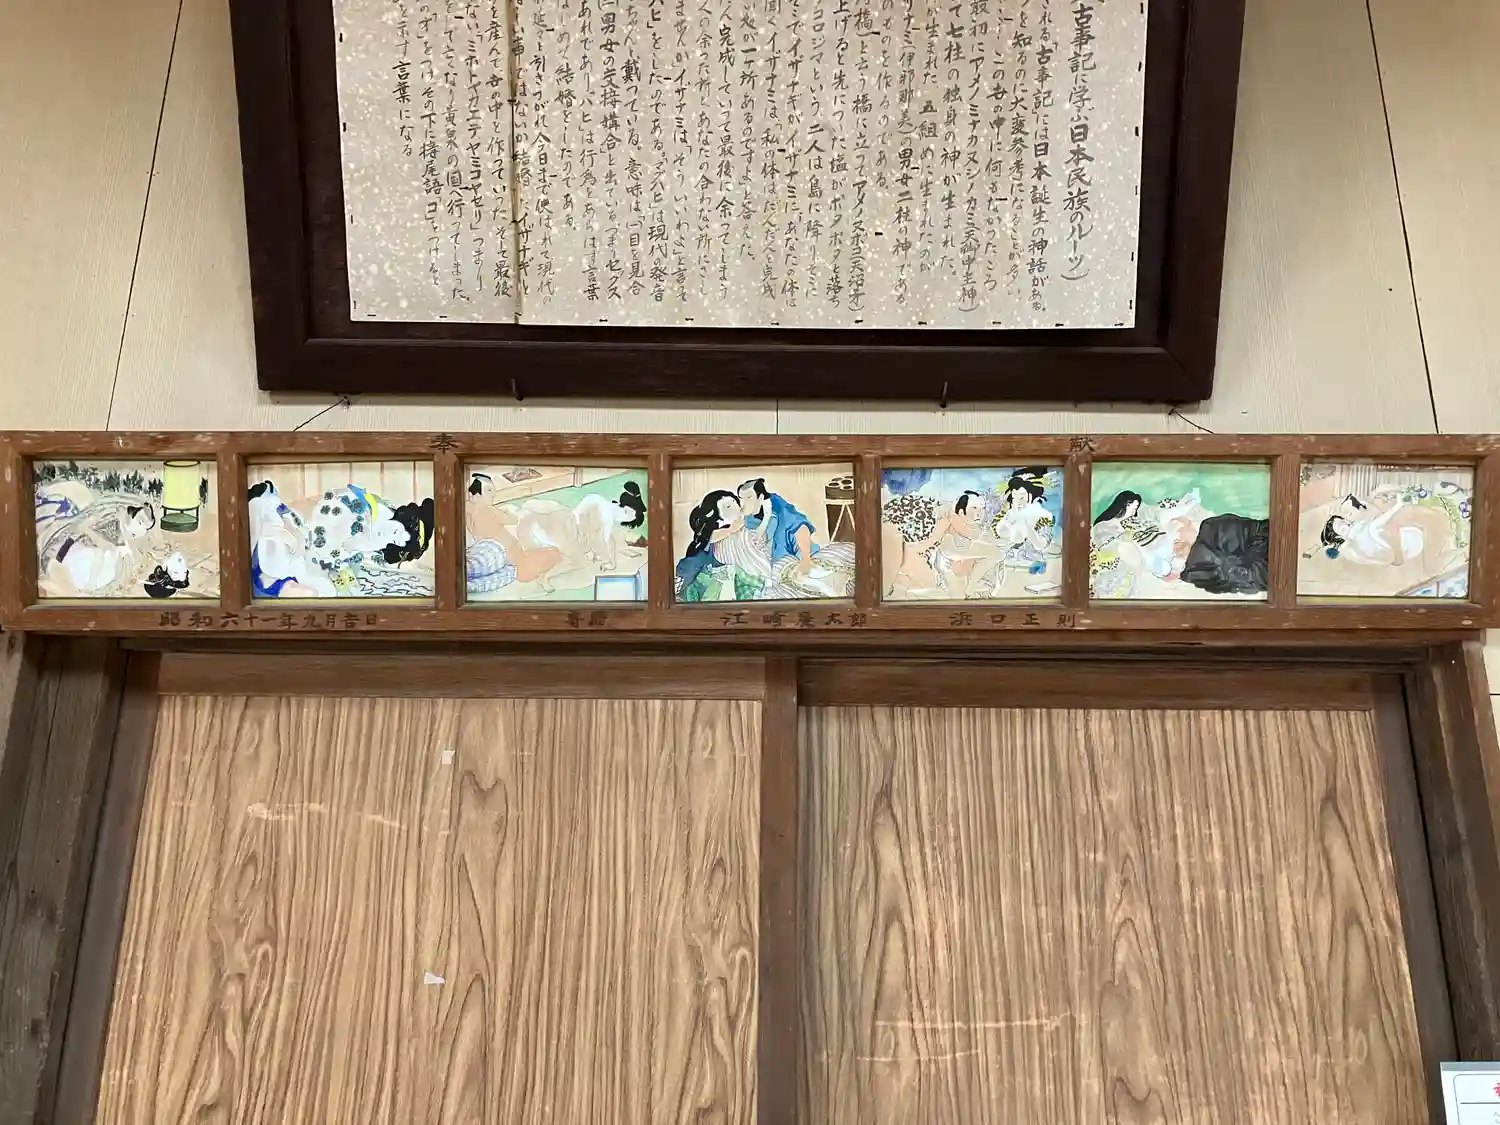 古事記に学ぶ日本民族のルーツ)
される「古事記」には日本誕生の神話がある。
を知るのに大変参考になることが多い
この世の中に何もなかったころ
最初にアメノミナカヌシノカミ(天御中主神)
て七柱の独身の神が生まれた。
が生まれた 五組めに生まれたのが
ナミ(伊邪那美)の男女二柱の神である
のものを作るのである。
橋)と云う橋に立ってアメノヌボコ(天沼矛)
上げると先についた塩がポタポタと落ち
コロジマという 二人は島に降りそこに
こでイザナギがイザナミに、あなたの体は
聞くイザナミは、私の体はだんだんと完成
い処が一ヶ所あるのですよと答えた。
ん完成していって最後に余ってしまう
人の余った所とあなたの合わない所にさし
ませんかイザナミは、「そう、いいわよ」と言って
ハヒ」をしたのである。マグハヒは現代の発音
ちゃんと載っている。意味は、「目を見合
男女の交接、媾合と出ている。つまりセックス
あれであり「ハヒ」は行為をあらはす言葉
はじめて結婚をしたのである。
延々と引きつがれ今日まで使はれて現代の
しい事ではないか 結婚したイザナギと
を産んで世の中を作っていった。そして最後
ない「ミホトヤカエテヤミコヤセリ」つまり
をして亡くなり黄泉の国へ行ってしまった
の「オ」をつけその下に接尾語「コ」をつけると
を示す言葉になる
奉 献
昭和六十一年九月吉日 江崎 太郎 浜口正則